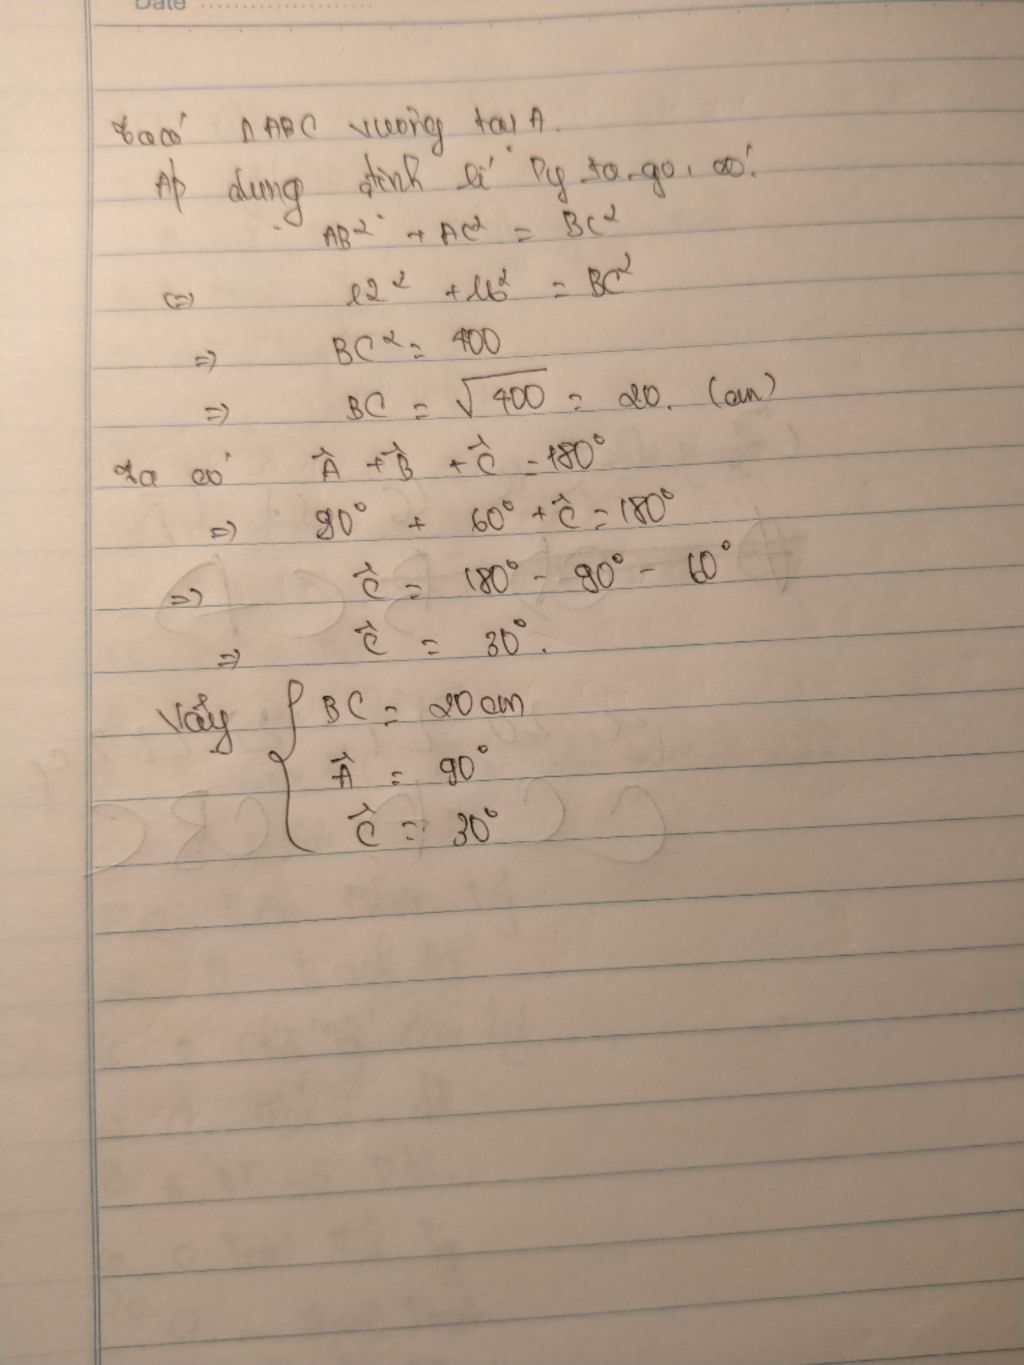 Date
Ta có ΔABC vuông tại A.
Áp dụng định lí Py-ta-go, có:
AB² + AC² = BC²
<=> 12² + 16² = BC²
=> BC² = 400
=> BC = √400 = 20. (cm)
Ta có Â + B̂ + Ĉ = 180°
=> 90° + 60° + Ĉ = 180°
=> Ĉ = 180° - 90° - 60°
=> Ĉ = 30°.
Vậy { BC = 20 cm
Â = 90°
Ĉ = 30°